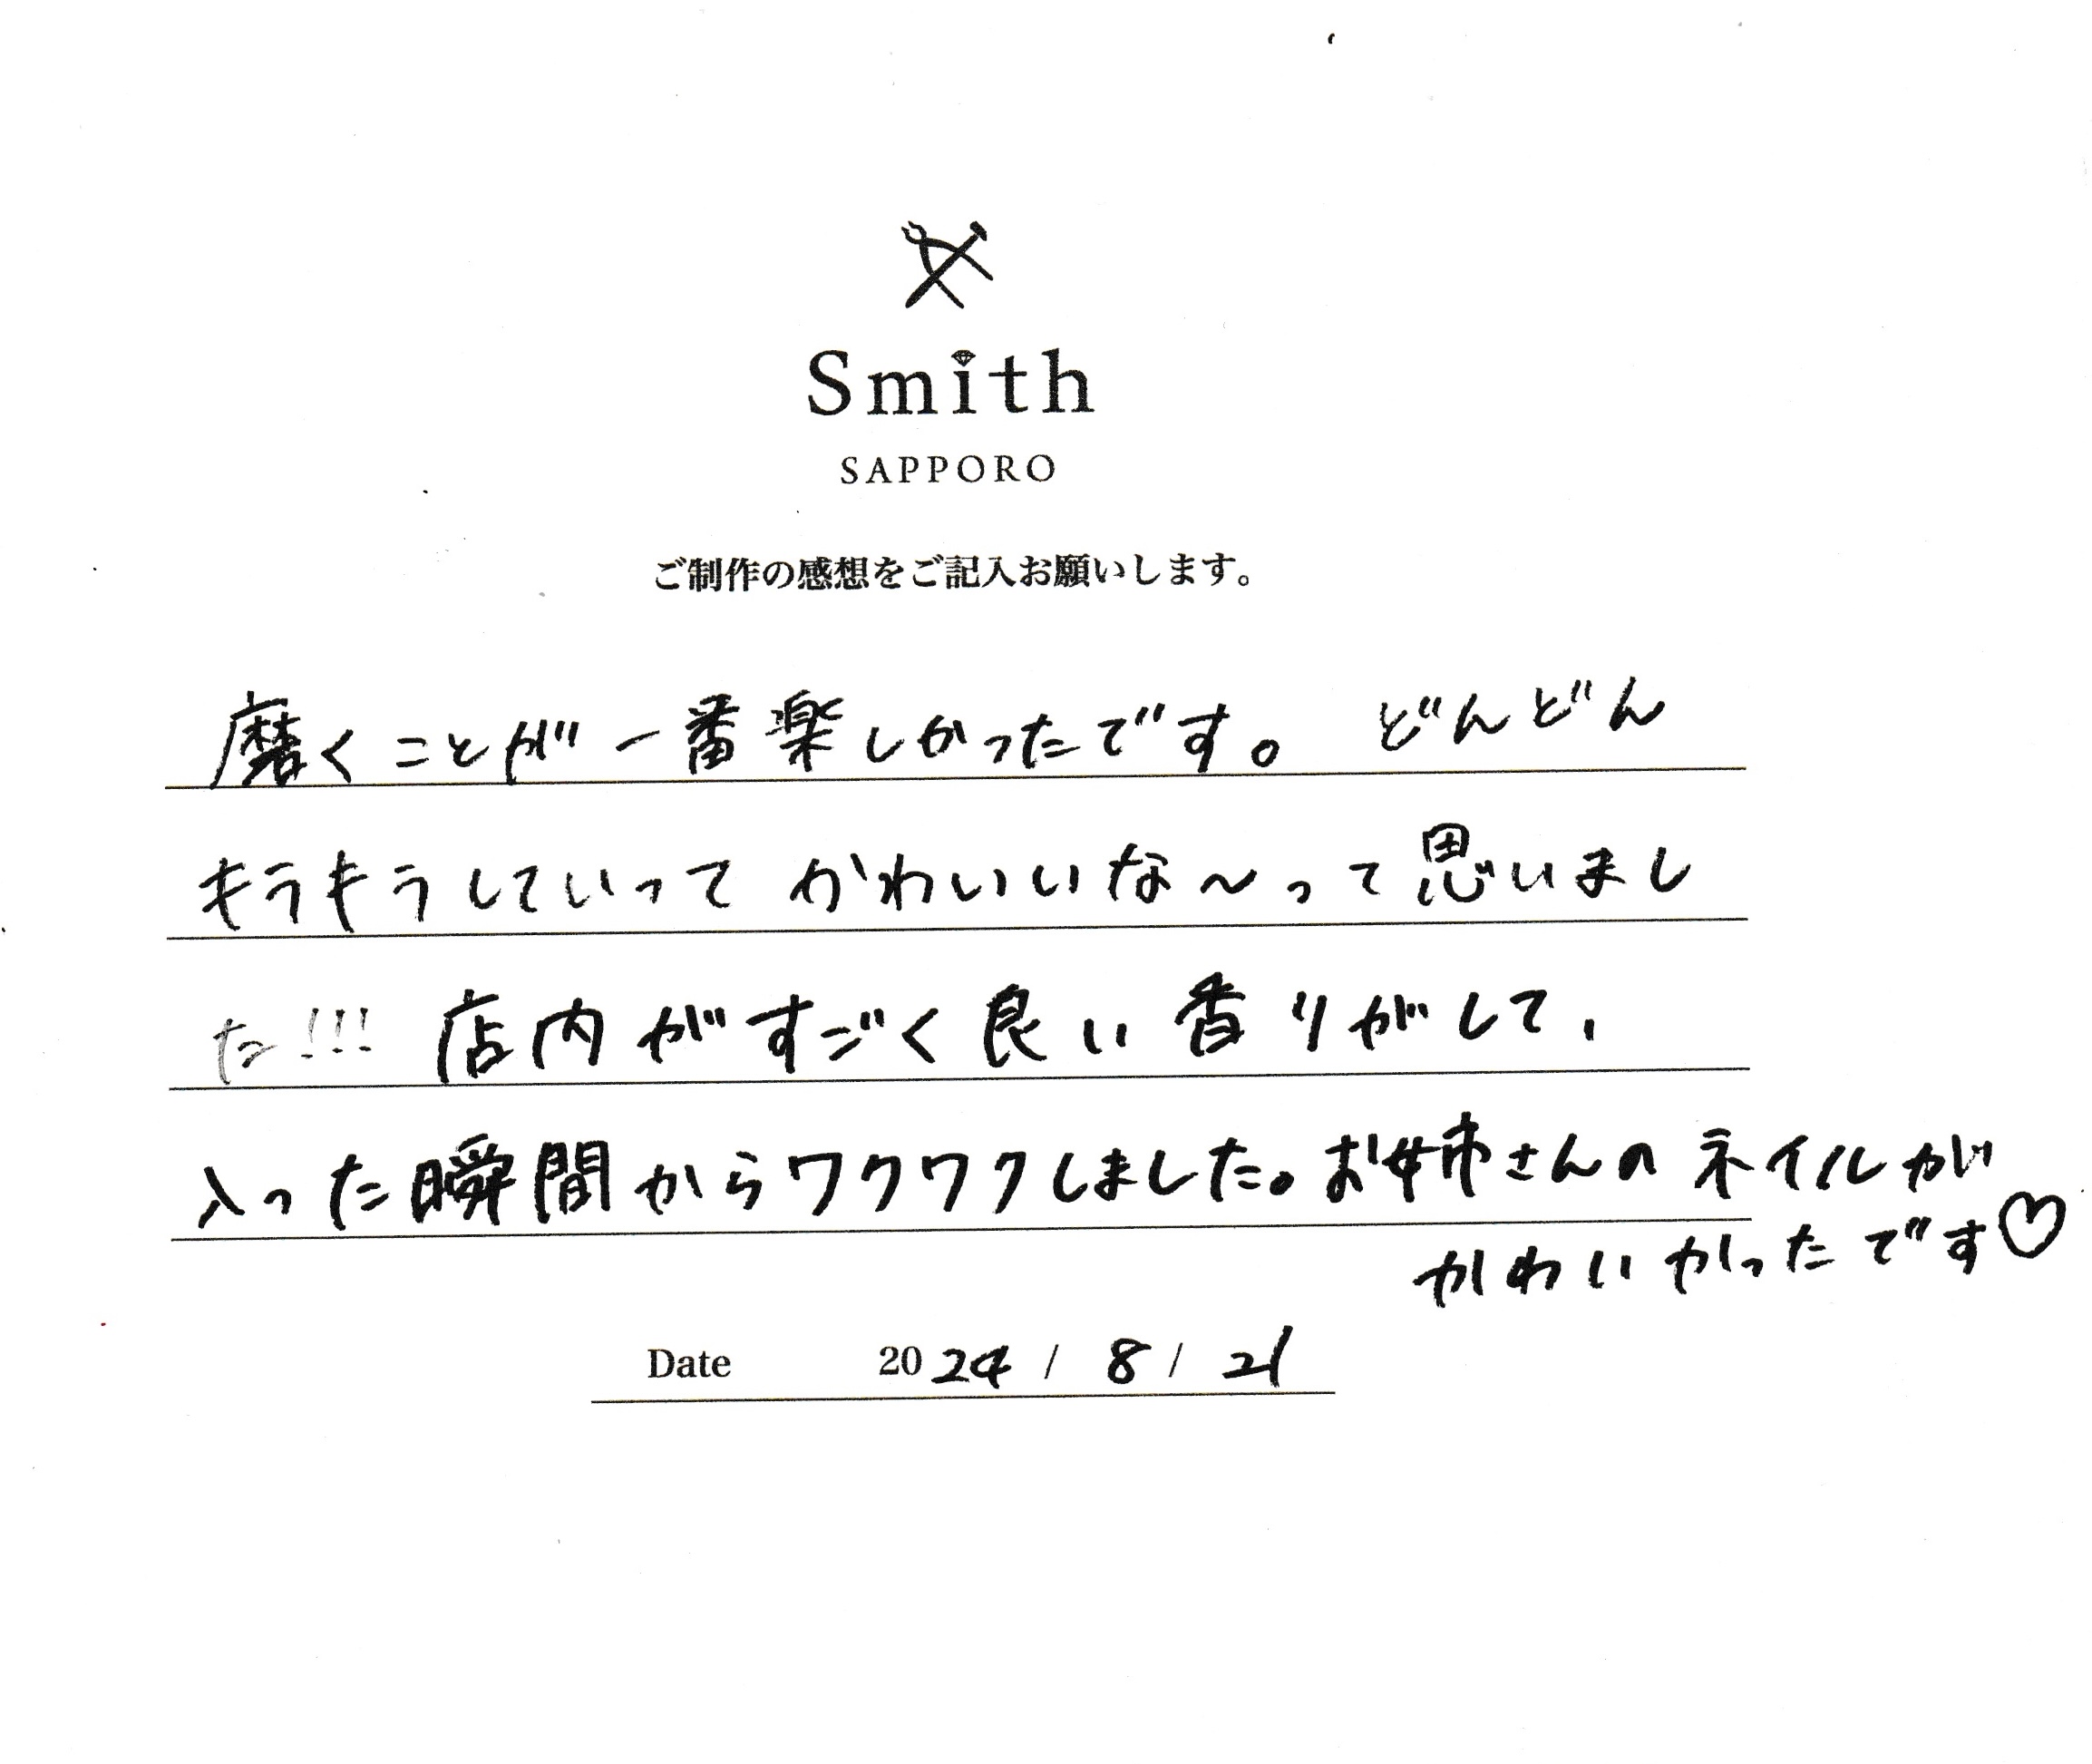 Smith
SAPPORO
ご制作の感想をご記入お願いします。
磨くことが一番楽しかったです。 どんどん
キラキラしていって かわいいな〜って思いまし
た!!! 店内がすごく良い香りがして、
入った瞬間からワクワクしました。お姉さんのネイルが
かわいかったです♡
Date 2024 / 8 / 21